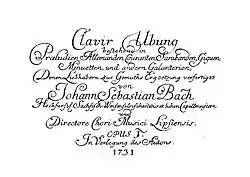 Clavir Ubung
bestehend in
Præludien, Allemanden, Couranten, Sarabanden, Giguen,
Menuetten, und andern Galanterien;
Denen Liebhabern zur Gemüths Ergoetzung verfertiget
von
Johann Sebastian Bach
Hochfürstl: Sächsisch-Weisenfelsischen würcklichen Capellmeistern
und
Directore Chori Musici Lipsiensis.
OPUS I.
In Verlegung des Autoris.
1731